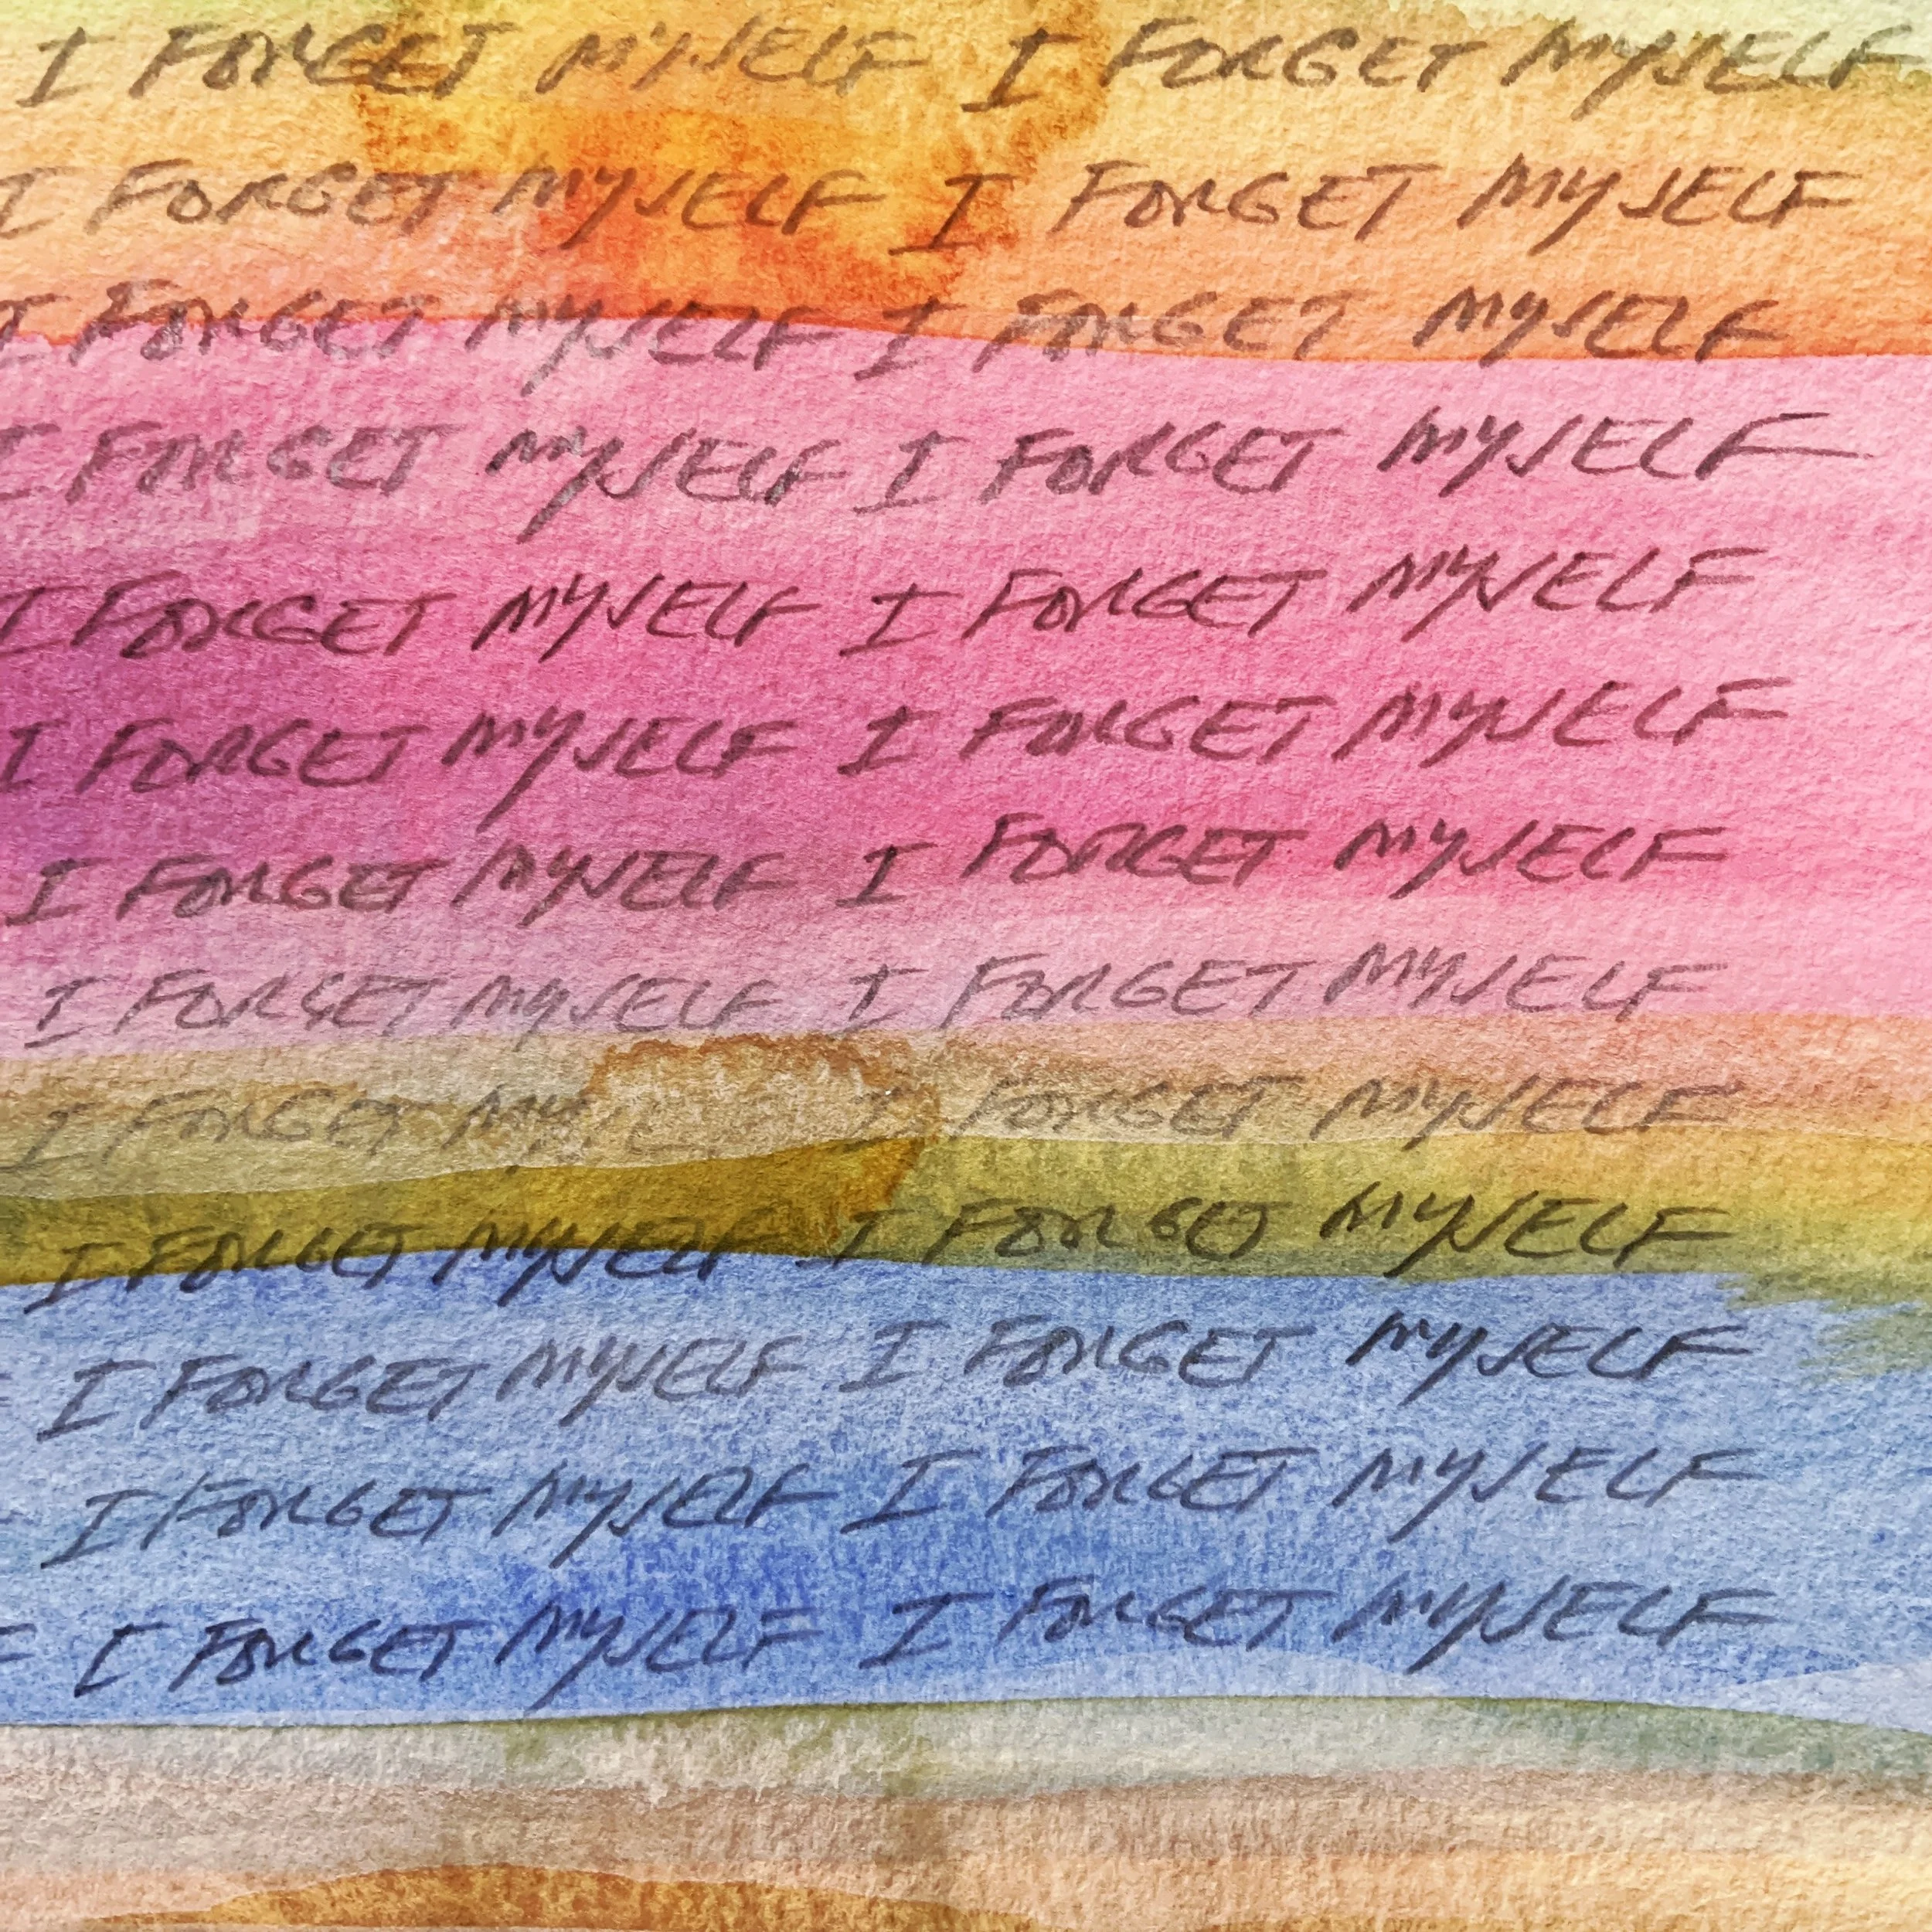 I FORGET MYSELF I FORGET MYSELF
I FORGET MYSELF I FORGET MYSELF
I FORGET MYSELF I FORGET MYSELF
I FORGET MYSELF I FORGET MYSELF
I FORGET MYSELF I FORGET MYSELF
I FORGET MYSELF I FORGET MYSELF
I FORGET MYSELF I FORGET MYSELF
I FORGET MYSELF I FORGET MYSELF
I FORGET MY I FORGET MYSELF
I FORGET MYSELF I FORGET MYSELF
I FORGET MYSELF I FORGET MYSELF
I FORGET MYSELF I FORGET MYSELF
F I FORGET MYSELF I FORGET MYSELF